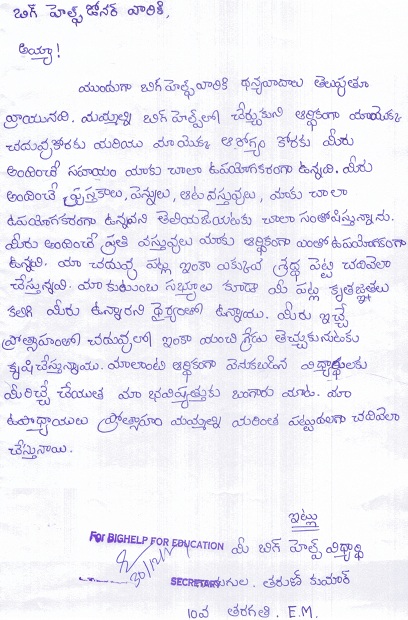 బిగ్ హెల్ప్ డోనర్ వారికి,
అయ్యా!
ముందుగా బిగ్ హెల్ప్ వారికి ధన్యవాదాలు తెలుపుతూ
వ్రాయునది. మమ్మల్ని బిగ్ హెల్ప్‌లో చేర్చుకుని ఆర్థికంగా మాయొక్క
చదువుకొరకు మరియు మాయొక్క ఆరోగ్యం కోరకు మీరు
అందించే సహాయం మాకు చాలా ఉపయోగకరంగా ఉన్నది. మీరు
అందించే పుస్తకాలు, పెన్నులు, ఆట వస్తువులు, మాకు చాలా
ఉపయోగకరంగా ఉన్నవని తెలియజేయుటకు చాలా సంతోషిస్తున్నాను.
మీరు అందించే ప్రతి వస్తువులు మాకు ఆర్థికంగా ఎంతో ఉపయోగకరంగా
ఉన్నవి. మా చదువు పట్ల ఇంకా ఎక్కువ శ్రద్ధ పెట్టి చదివేలా
చేస్తున్నవి. మా కుటుంబ సభ్యులు కూడా మీ పట్ల కృతజ్ఞతలు
కలిగి మీరు ఉన్నారని ధైర్యంతో ఉన్నాము. మీరు ఇచ్చే
ప్రోత్సాహంతో చదువులో ఇంకా మంచి గ్రేడు తెచ్చుకునుటకు
కృషి చేస్తున్నాము. మాలాంటి ఆర్థికంగా వెనుకబడిన విద్యార్థులకు
మీరిచ్చే చేయూత మా భవిష్యత్తుకు బంగారు బాట. మా
ఉపాధ్యాయులు ప్రోత్సాహం మమ్మల్ని మరింత పట్టుదలగా చదివేలా
చేస్తునాయి.
ఇట్లు
For BIGHELP FOR EDUCATION మీ బిగ్ హెల్ప్ విద్యార్థి
SECRETARY తరుణ్ కుమార్
10వ తరగతి. E.M.